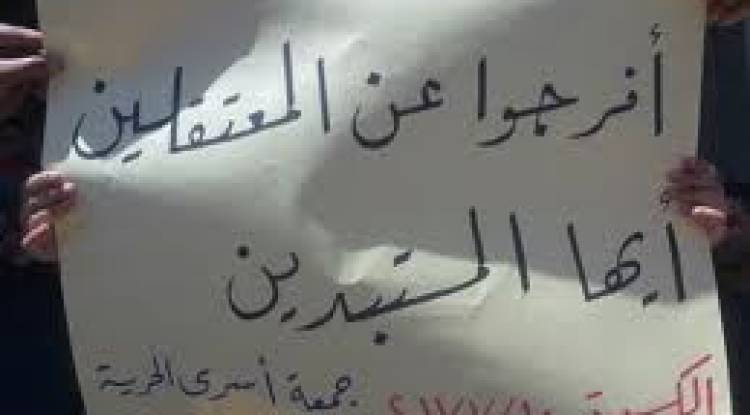 أفرجوا عن المعتقلين
أيها المستبدين
جمعة أسرى الحرية